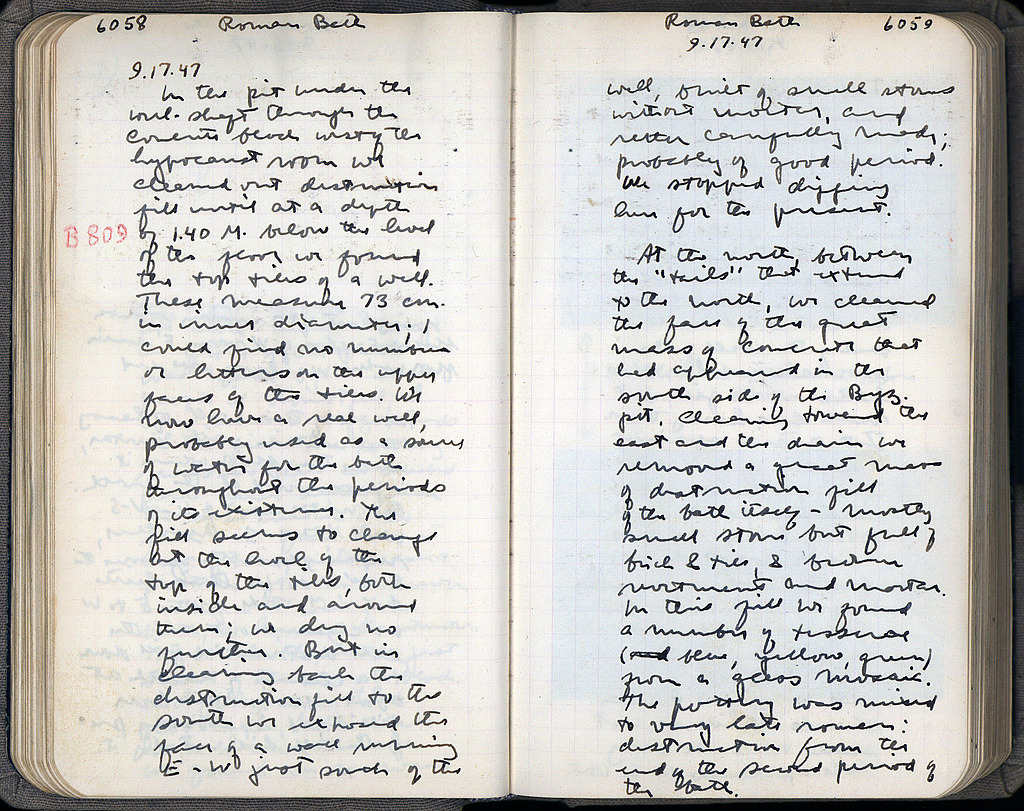 6058 Roman Bath
9.17.47
In the pit under the
well-shaft through the
concrete block west of the
hypocaust room we
cleaned out destruction
fill until at a depth
B 809 of 1.40 M. below the level
of the floor we found
the top tiles of a well.
These measure 73 cm.
in inner diameter; I
could find no numbers
or letters on the upper
faces of the tiles. We
now have a real well,
probably used as a source
of water for the bath
throughout the periods
of its existence. The
fill seems to change
at the level of the
top of the tiles, both
inside and around
them; we dug no
further. But in
clearing back the
destruction fill to the
south we exposed the
face of a wall running
E-W just south of the
Roman Bath 6059
9.17.47
well, built of small stones
without mortar, and
rather carefully made;
probably of good period.
We stopped digging
here for the present.
At the north, between
the "tails" that extend
to the north, we cleaned
the face of the great
mass of concrete that
had appeared in the
south side of the Byz.
pit. Cleaning toward the
east and the drain we
removed a great mass
of destruction fill
of the bath itself - mostly
small stones but full of
brick & tiles, & broken
revetments and mortar.
In this fill we found
a number of tesserae
(blue, yellow, green)
from a glass mosaic.
The pottery was mixed
to very late roman:
destruction from the
end of the second period of
the bath.